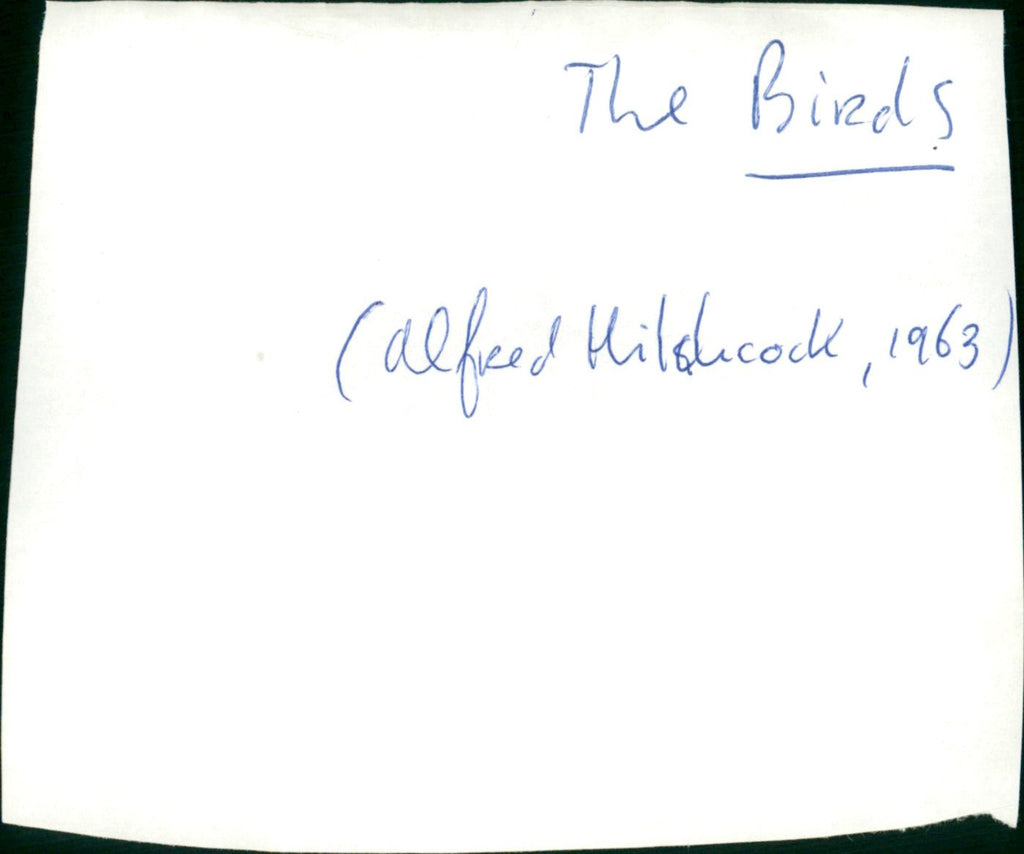 The Birds
(Alfred Hitchcock, 1963)